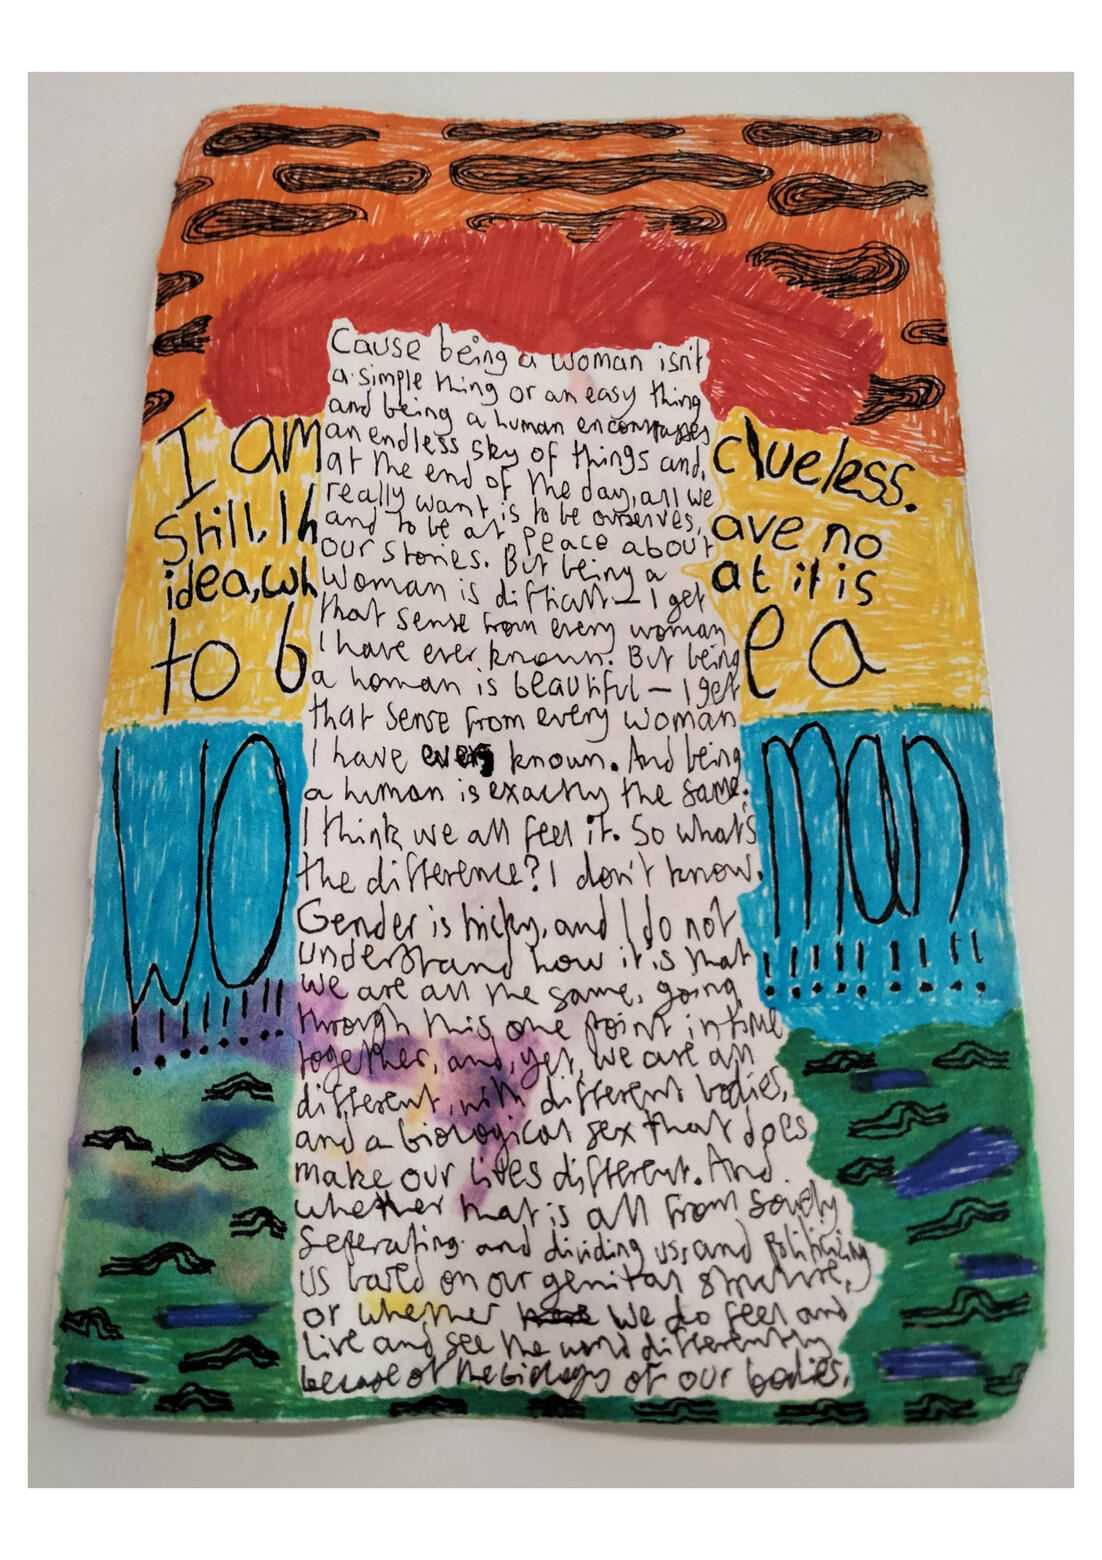 I am clueless.
Still, I have no
idea, what it is
to be a
WOman
!!!!!!!! !!!!!!!!!
Cause being a woman isn't
a simple thing or an easy thing
and being a human encompasses
an endless sky of things and,
at the end of the day, all we
really want is to be ourselves,
and to be at peace about
our stories. But being a
woman is difficult — I get
that sense from every woman
I have ever known. But being
a woman is beautiful — I get
that sense from every woman
I have ever known. And being
a human is exactly the same.
I think we all feel it. So what's
the difference? I don't know.
Gender is tricky, and I do not
understand how it is that
we are all the same, going
through this one point in time
together, and, yet, we are all
different, with different bodies,
and a biological sex that does
make our lives different. And
whether that is all from society
seperating and dividing us, and politicising
us based on our genital structure,
or whether we do feel and
live and see the world differently
because of the biology of our bodies.